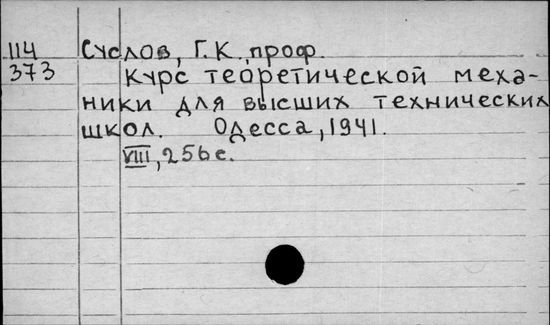 114 Суслов, Г.К., проф.
373 Курс теоретической меха-
ники для высших технических
школ. Одесса, 1941.
VIII, 256 с.